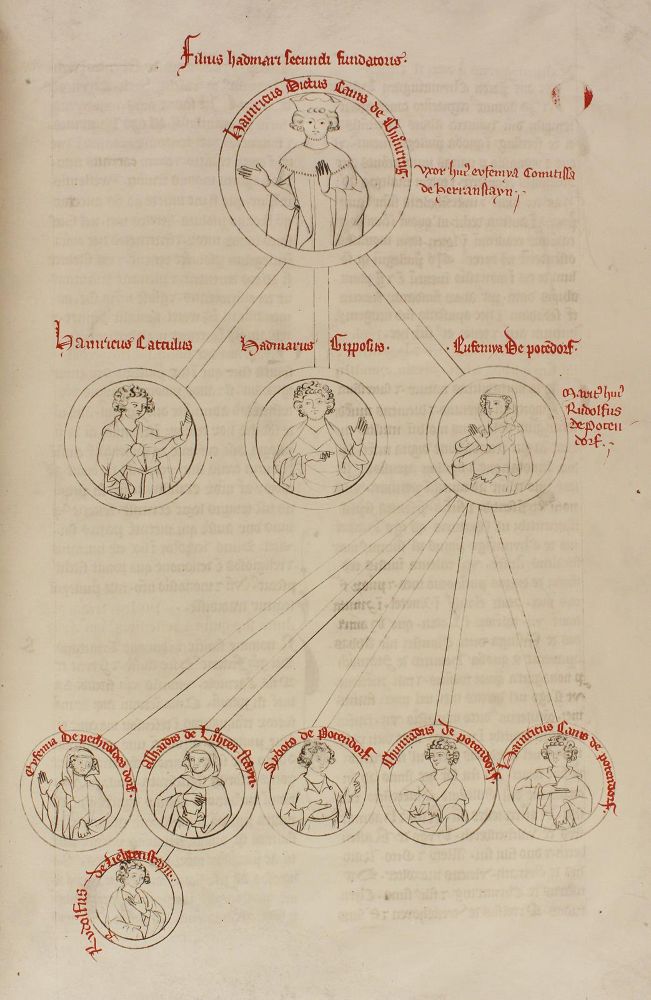 Filius hadmari secundi fundatoris.
Hainricus Dictus Canis de Chunring
Vxor hui' eufemya Comitissa
de herranstayn
Hainricus Catculus
Hadmarus Gipposus.
Eufemya De potedorf.
Marit' hui'
Rudolfus
de Poten
dorf.
Eyfemia De pechtoldes dorf.
Alhaidis de Lihten stayn.
Seboto de Potendorf.
Chunradus de potendorf.
Hainricus Canis de potendorf.
Rudolfus de Liehtenstayn.